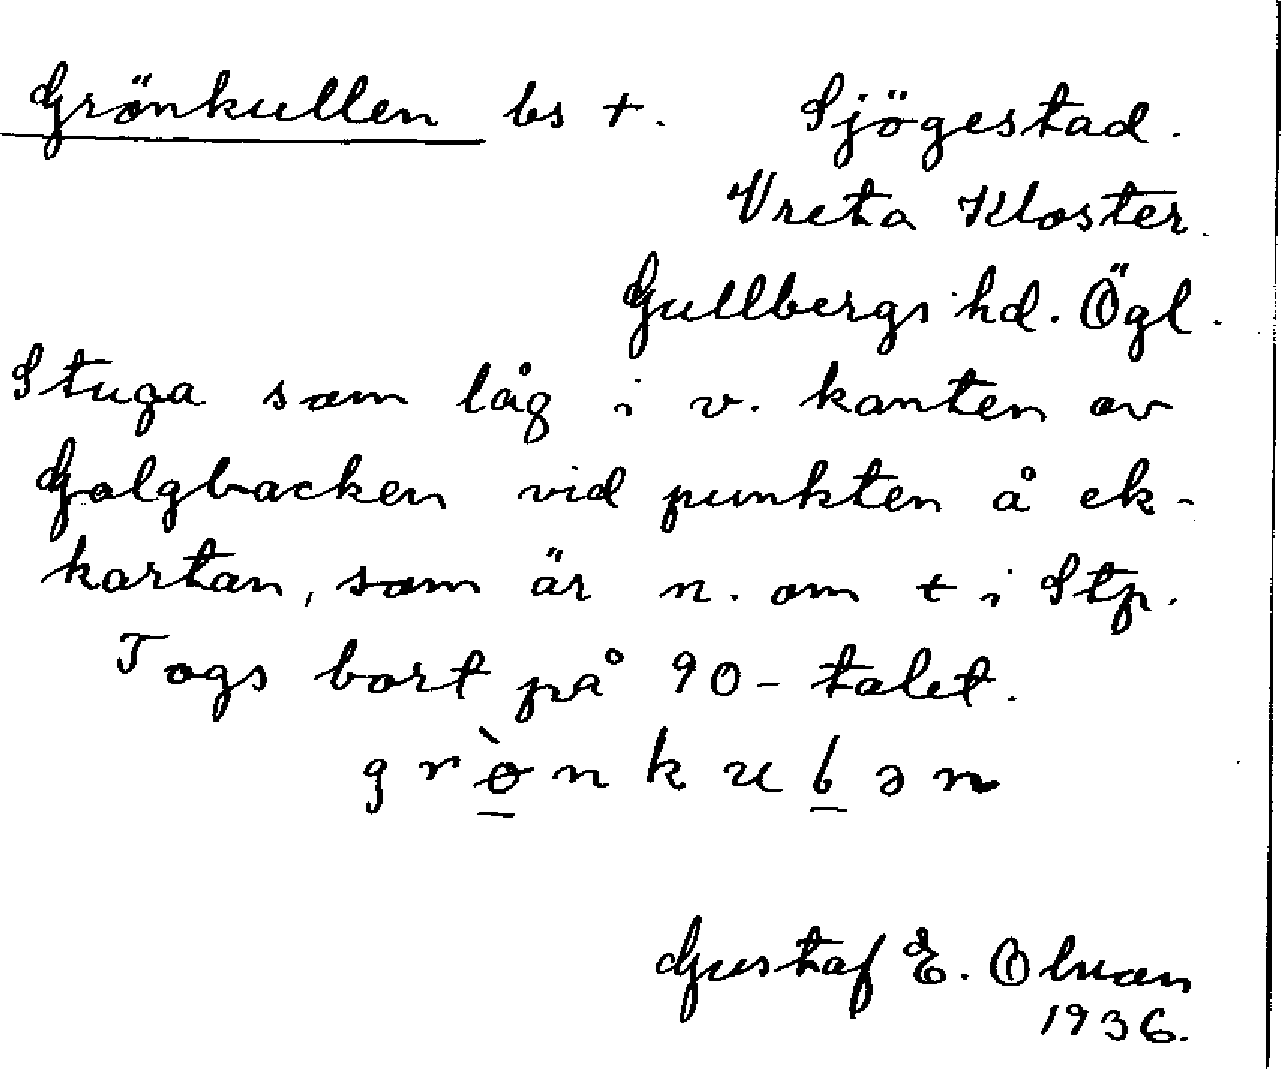 Grönkullen bs +. Sjögestad.
Vreta Kloster.
Gullbergs hd. Ögl.
Stuga som låg i v. kanten av
Galgbacken vid punkten å ek-
kartan, som är n. om + i Stp.
Togs bort på 90-talet.
grø̀nkulən
Gustaf E. Olson
1936.